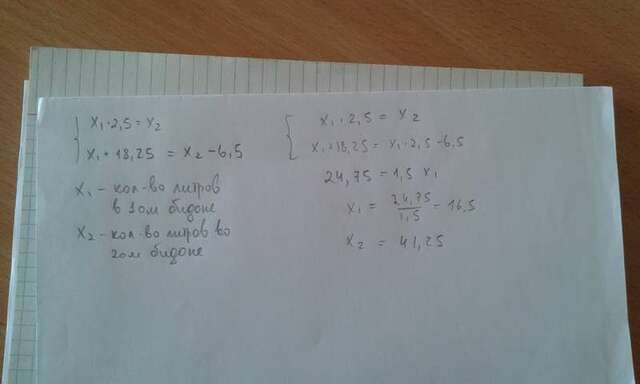 x₁·2,5 = x₂
x₁ + 18,25 = x₂ - 6,5
x₁ - кол-во литров
в 1ом бидоне
x₂ - кол-во литров во
2ом бидоне
x₁·2,5 = x₂
x₁+18,25 = x₁·2,5-6,5
24,75 = 1,5 x₁
x₁ = 24,75/1,5 = 16,5
x₂ = 41,25